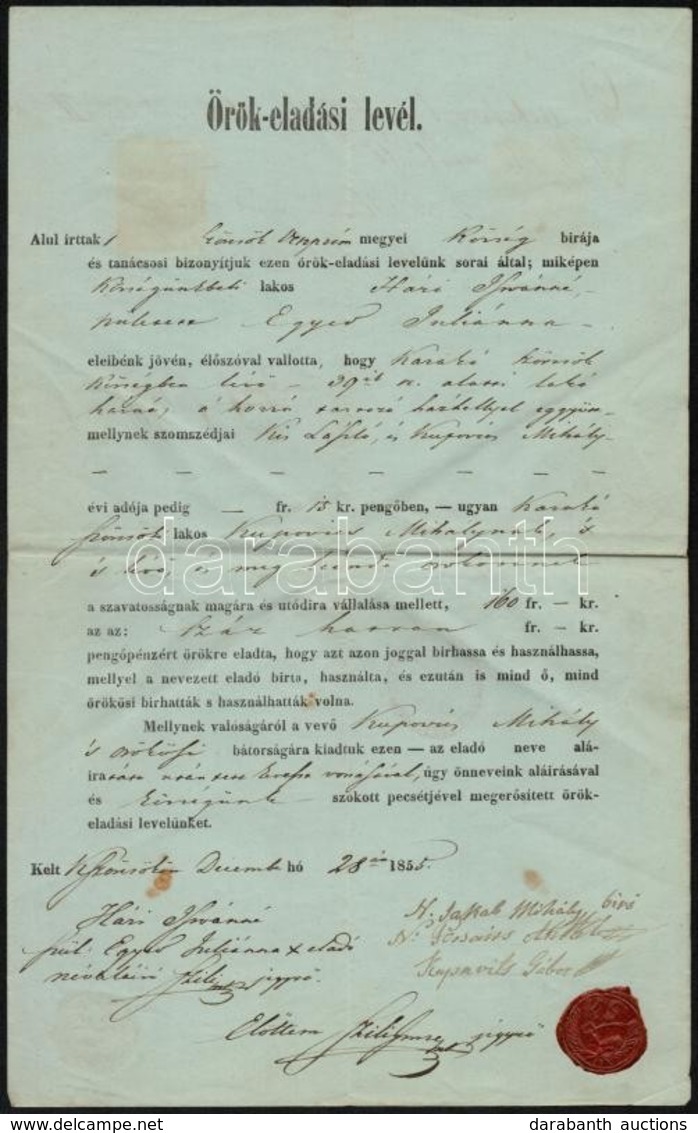 Örök-eladási levél.
Alul irttak megyei Község birája
és tanácsosi bizonyítjuk ezen örök-eladási levelünk sorai által; miképen
Községünkbeli lakos Hári Istvánné,
születése Egyed Juliánna –
eleibénk jövén, élőszóval vallotta, hogy Karakó Szörcsök
Községben lévő – 39 sz. alatti lakó
házát, a hozzá tartozó házhellyel eggyütt
mellynek szomszédjai Kis László, és Kupovics Mihály
– – – – – – – –
évi adója pedig — fr. 15 kr. pengőben, — ugyan Karakó
Szörcsök lakos Kupovics Mihálynak, s
örökösinek
a szavatosságnak magára és utódira vállalása mellett, 160 fr. — kr.
az az: Száz hatvan fr. — kr.
pengőpénzért örökre eladta, hogy azt azon joggal birhassa és használhassa,
mellyel a nevezett eladó birta, használta, és ezután is mind ő, mind
örökösi birhatták s használhatták volna.
Mellynek valóságáról a vevő Kupovics Mihály
és örökösi bátorságára kiadtuk ezen — az eladó neve alá-
iratása után kereszt vonásával, úgy önneveink aláirásával
és Községünk — szokott pecsétjével megerősített örök-
eladási levelünket.
Kelt KSzörcsökön December hó 28án 1855.
Hári Istvánné
szül. Egyed Juliánna x eladó
névaláiró jegyző.
N. Jakab Mihály biró
Kupovits Gábor
Előttem jegyző
darabanth
darabanth auctions